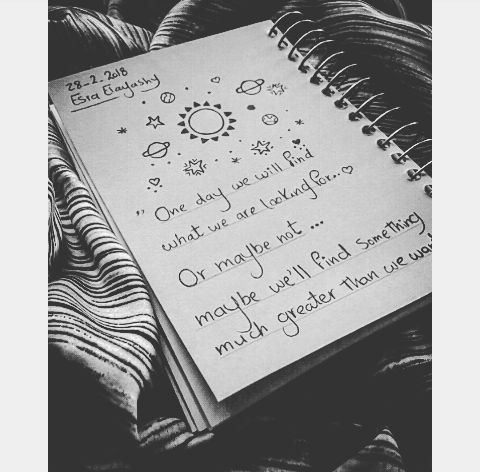 28_2_2018
Esra Elayashy
" One day we will find
what we are looking for..♡
Or maybe not ...
maybe we'll find something
much greater than we wan